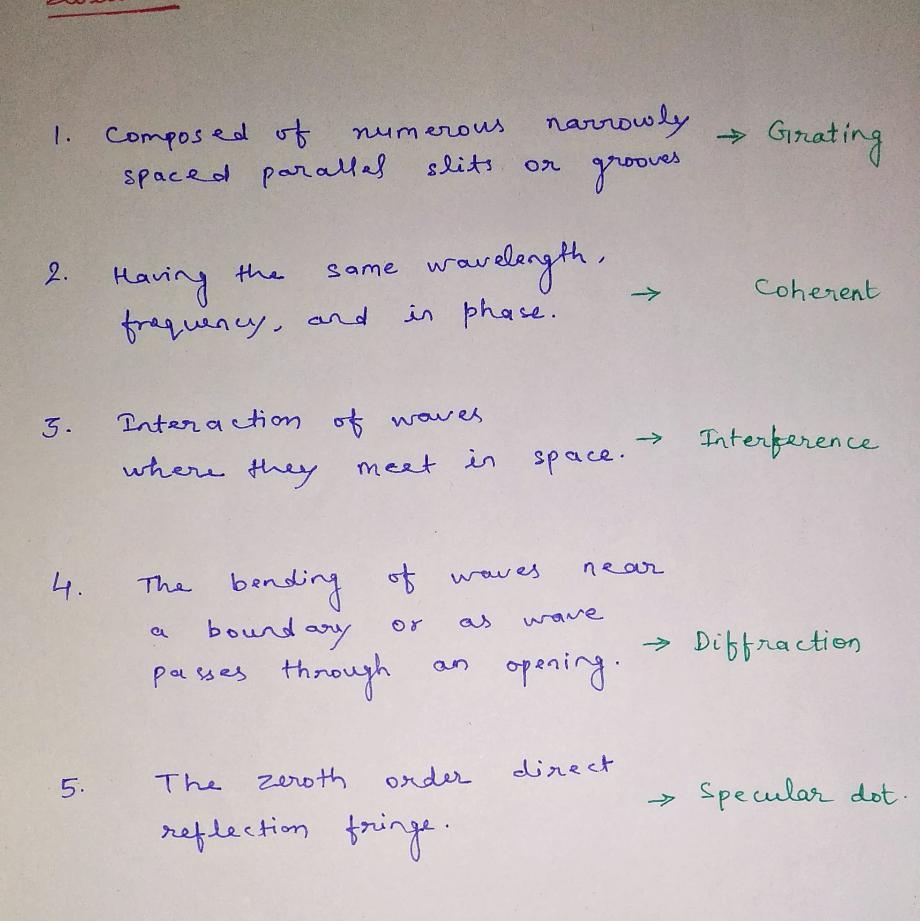 1. Composed of numerous narrowly → Grating
spaced parallel slits or grooves
2. Having the same wavelength,
frequency, and in phase. → Coherent
3. Interaction of waves
where they meet in space. → Interference
4. The bending of waves near
a boundary or as wave
passes through an opening. → Diffraction
5. The zeroth order direct
reflection fringe. → Specular dot.